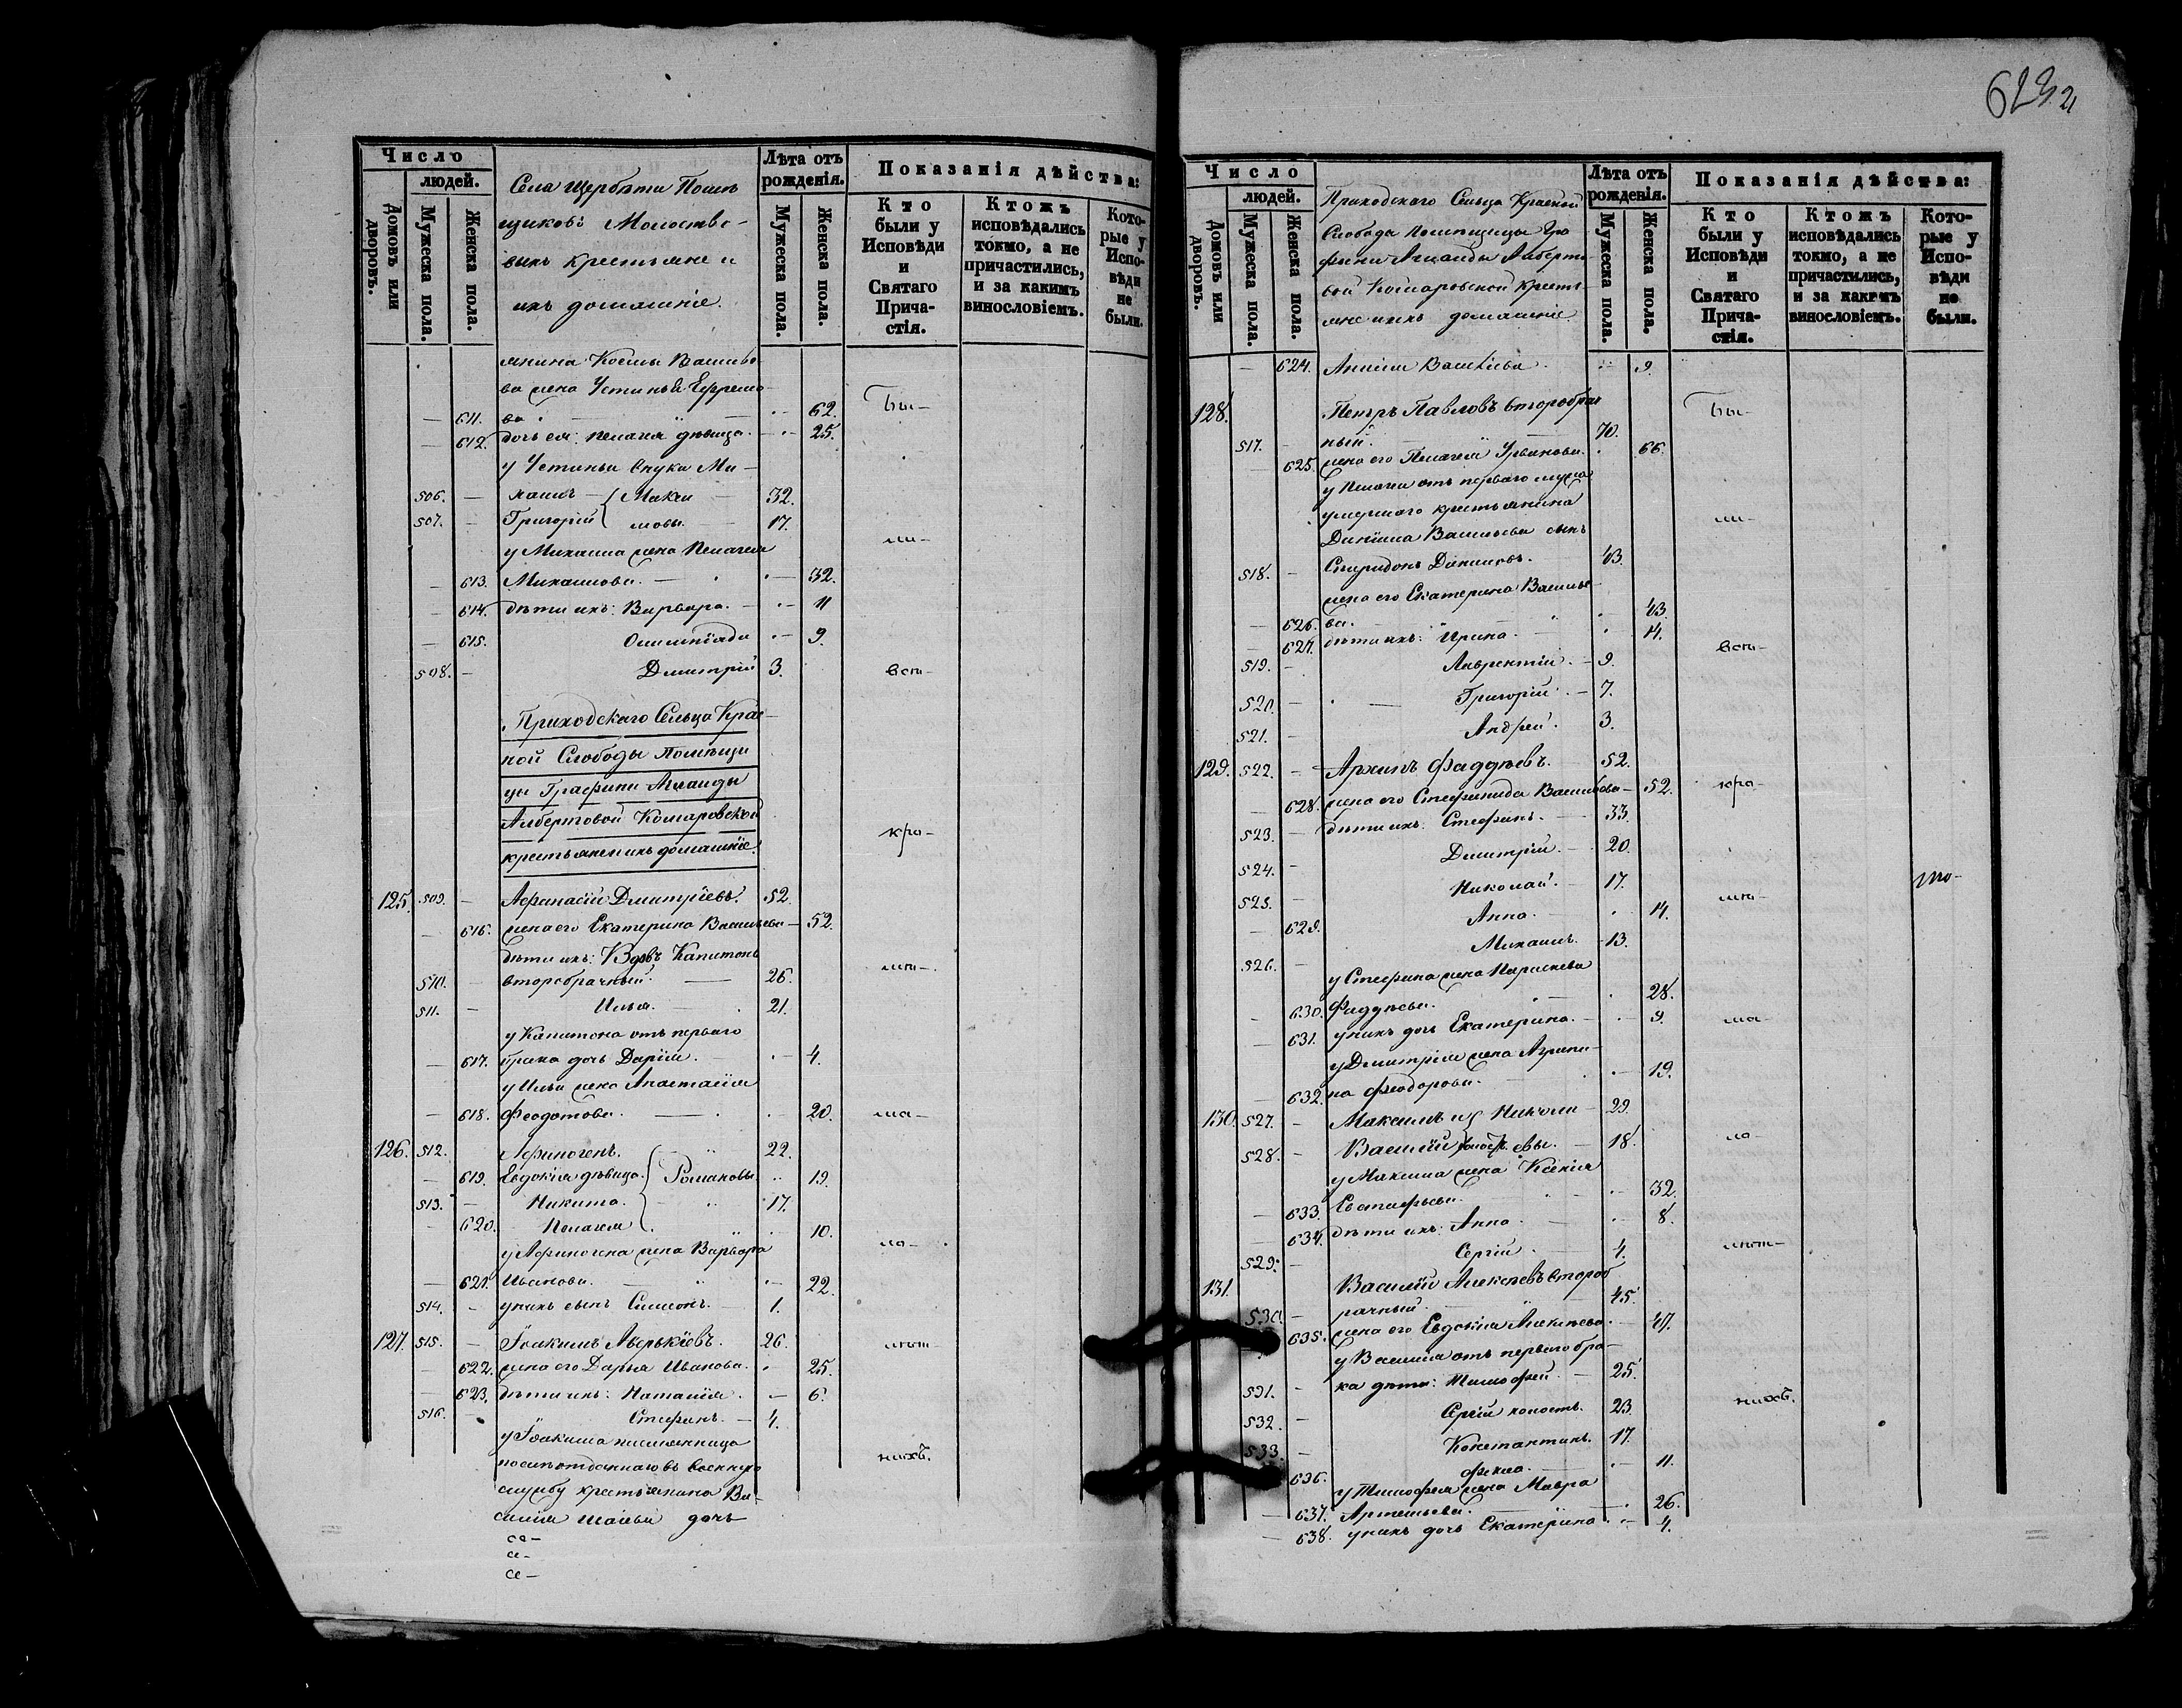 623
Число
людей.
Домовъ или дворовъ.
Мужеска пола.
Женска пола.
Села Щербети Помѣ
щиковъ Молоство-
выхъ крестьяне и
ихъ домашніе
Лѣта отъ рожденія.
Мужеска пола.
Женска пола.
Показанія дѣйства:
Кто были у Исповѣди и Святаго Прича-стія.
Ктожъ исповѣдались токмо, а не причастились, и за какимъ винословіемъ.
Кото-рые у Испо-вѣди не были.
янина Космы Василье
ва жена Устинья Ефремо
— 611. ва. — 62. Бы-
— 612. дочь ея: Пелагея дѣвица. — 25.
у Устиньи внуки Ми-
506. — хаилъ { Макси — 32.
507. — Григорій { мовы. — 17.
у Михаила жена Пелагея ли-
— 613. Михаилова. — 32.
— 614. дѣти ихъ: Варвара. — 11
— 615. Олимпіада — 9.
508. — Димитрій 3. всѣ-
Приходскаго Сельца Крас-
ной Слободы Помѣщи
цы Графини
Албертовой Комаровской кро-
крестьяне и ихъ домашніе.
125. 509. — Афанасій Димитріевъ. 52.
— 616. жена его Екатерина Васильева — 52.
дѣти ихъ: Вдовъ Капитонъ
510. — второбрачный. — 26.
511. — Илья. 21.
у Капитона отъ перваго
— 617. брака дочь Дарія. — 4.
у Ильи жена Анастасія
— 618. Феодотова. — 20. ма-
126. 512. Афиногенъ. 22.
— 619. Евдокія дѣвица. { Романовы. 19.
513. — Никита. 17.
— 620. Пелагея 10.
у Афиногена жена Варвара ло-
— 621. Иванова. — 22.
514. — у нихъ сынъ Симеонъ. 1.
127. 515. — Іоакимъ Аверькіевъ. 26. лѣт-
— 622. жена его Дарья Иванова. 25.
— 623. дѣти ихъ: Наталія. — 6.
516. — Стефанъ. — 4.
у Іоакима племянница
отданнаго въ военную нихъ.
службу крестьянина Ва-
силія дочь
Число
людей.
Домовъ или дворовъ.
Мужеска пола.
Женска пола.
Приходскаго Сельца Красной
Слободы Помѣщицы Гра
фини Алберто
вой Комаровской кресть-
яне и ихъ домашніе.
Лѣта отъ рожденія.
Мужеска пола.
Женска пола.
Показанія дѣйства:
Кто были у Исповѣди и Святаго Прича-стія.
Ктожъ исповѣдались токмо, а не причастились, и за какимъ винословіемъ.
Кото-рые у Испо-вѣди не были.
— 624. Васильева. 9.
128. Петръ Павловъ второбрач Бы-
517. — ный. 70.
— 625. жена его Пелагея Ульянова. 66.
у Пелагеи отъ перваго мужа
умершаго крестьянина ли-
Даніила Васильева сынъ
518. — Спиридонъ Даниловъ. 43.
жена его Екатерина Василье-
— 626. ва. 43.
— 627. дѣти ихъ: Ирина. 14. всѣ-
519. — Лаврентій. — 9.
520. — Григорій. — 7.
521. — Андрей. 3.
129. 522. — Архипъ Фаддѣевъ. — 52.
— 628. жена его Стефанида Васильева — 52. кро-
523. — дѣти ихъ: Стефанъ. — 33.
524. — Димитрій. — 20.
525. — Николай. — 17.
— 629. Анна. 14.
526. — Михаилъ. 13.
у Стефана жена Параскева
— 630. Фаддѣева. 28.
— 631. у нихъ дочь Екатерина. — 9. ма-
у Димитрія жена Агрипи-
— 632. на Феодорова. — 19.
130. 527. — Максимъ и { Никола — 29.
528. — Василій холост. евы. — 18. ло-
у Максима жена Ксенія
— 633. Евстафьева. 32.
— 634. дѣти ихъ: Анна. — 8.
529. — Сергій. 4. лѣт-
131. Василій Алексѣевъ второб
530. — рачный. 45.
— 635. жена его Евдокія 47.
у Василія отъ перваго бра-
531. — ка дѣти: Тимофей. — 25.
532. — Сергій холостъ. 23. нихъ.
533. — Константинъ. 17.
636. Фекла. 11.
у Тимофея жена Мавра
— 637. Артемьева. 26.
— 638. у нихъ дочь Екатерина. — 4.